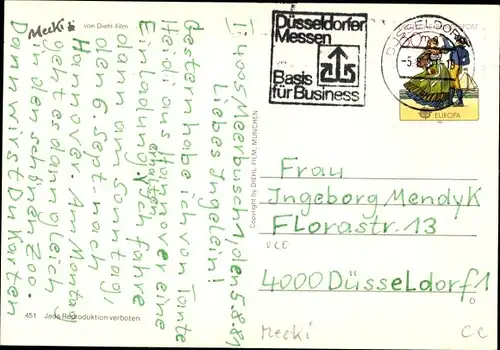 Mecki: von Diehl-Film
I. 4005 Meerbusch 1, den 5.8.81
Liebes Ingelein!
Gestern habe ich von Tante
Hedi aus Hannover eine
Einladung erhalten. Ich fahre
dann am Sonntag,
den 6. Sept. nach
Hannover. Am Montag
geht es dann gleich
in den schönen Zoo.
Dann wirst Du Karten
451 Jede Reproduktion verboten
Copyright by DIEHL-FILM, MÜNCHEN
Düsseldorfer
Messen
Basis
für Business
DÜSSELDORF
-5.8.
EUROPA
Frau
Ingeborg Mendyk
Florastr. 13
4000 Düsseldorf 1
Mecki